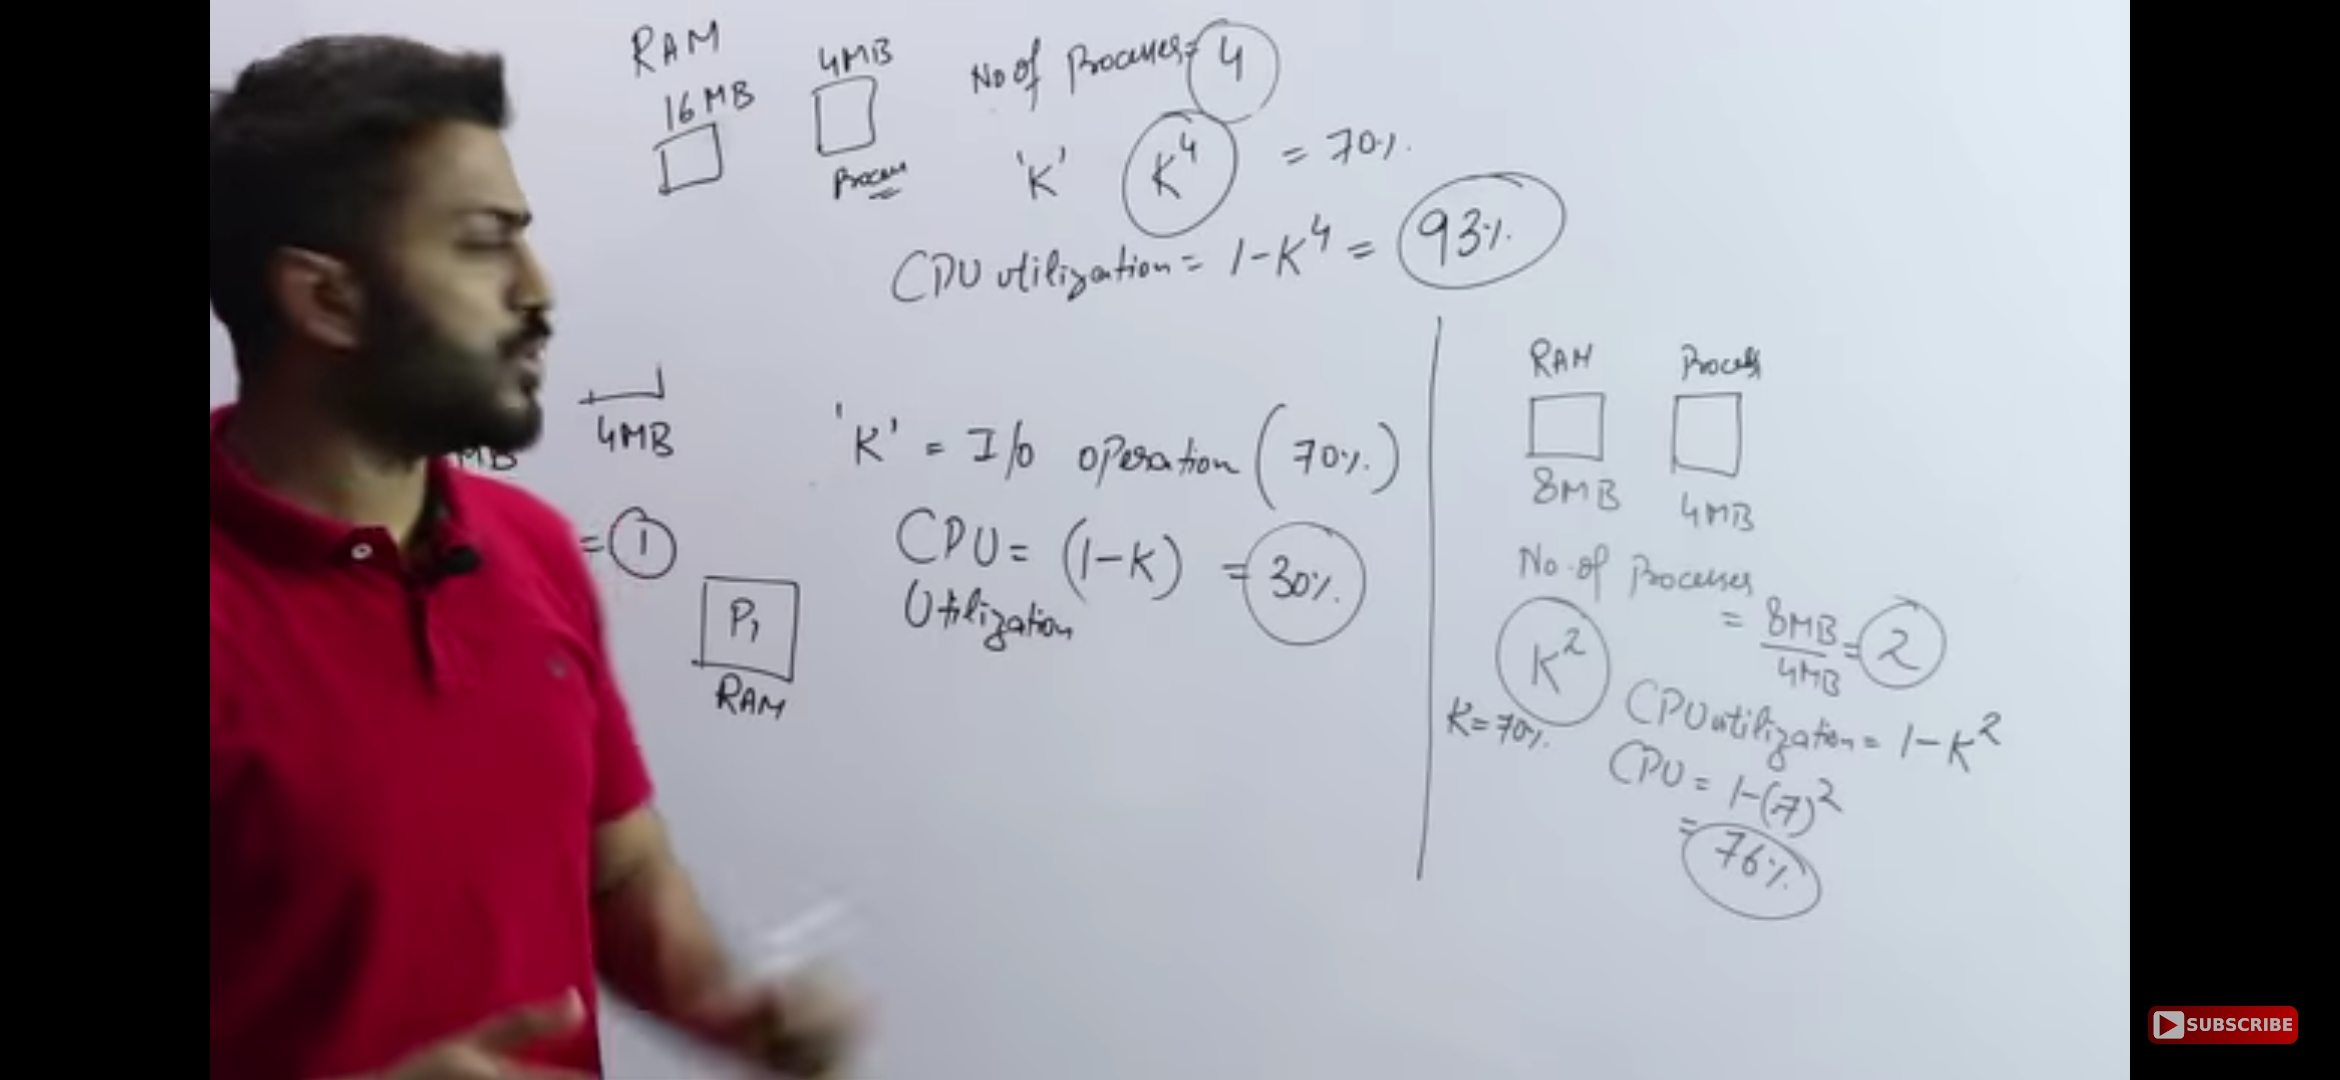 RAM
16MB
4MB
Process
No of Processes= 4
'K' K⁴ = 70%.
CPU utilization = 1-K⁴ = 93%.
4MB
MB
= 1
P₁
RAM
'K' = I/O operation (70%.)
CPU = (1-K) = 30%.
Utilization
RAM Process
8MB 4MB
No. of Processes
= 8MB/4MB = 2
K²
K=70%.
CPU utilization = 1-K²
CPU = 1-(.7)²
= 76%.
SUBSCRIBE